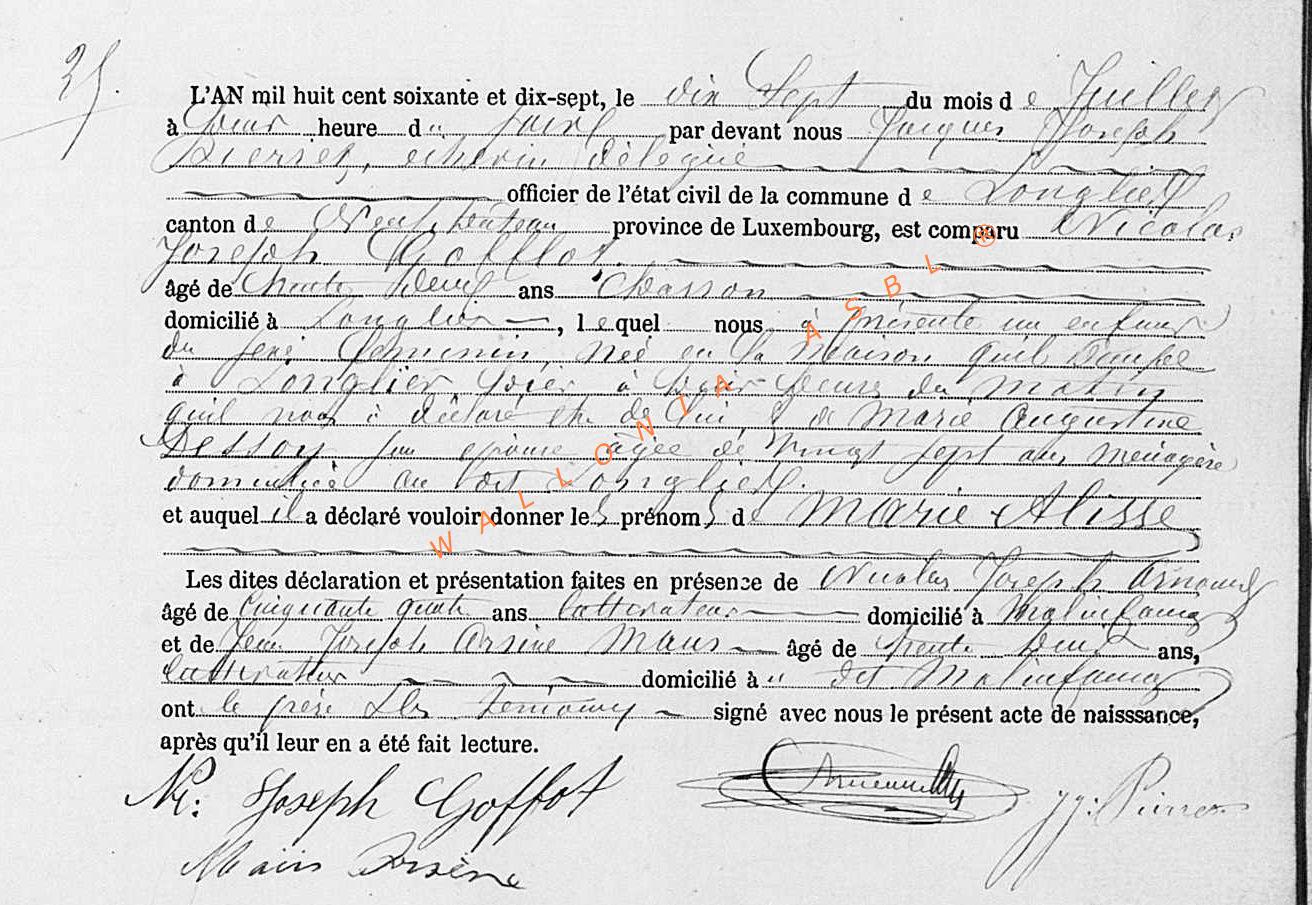 35.
L'AN mil huit cent soixante et dix-sept, le dix Sept du mois de Juillet
à heure du soir par devant nous Jacques Joseph
Pierret, échevin délégué
officier de l'état civil de la commune de Longlier
canton de Neufchateau province de Luxembourg, est comparu Nicolas
Joseph Goffot
âgé de trente deux ans
domicilié à Longlier, lequel nous a présenté un enfant
du sexe féminin, née en la maison qu'il occupe
à Longlier hier à heures du matin
qu'il nous a déclaré être de lui, & de Marie Augustine
Dessoy son épouse âgée de vingt sept ans ménagère
domiciliée au dit Longlier.
et auquel il a déclaré vouloir donner les prénoms de Marie Alisse
Les dites déclaration et présentation faites en présence de Nicolas Joseph Arnould
âgé de cinquante quatre ans cultivateur domicilié à Molinfaing
et de Jean Joseph Arsène Maus âgé de trente deux ans,
cultivateur domicilié à dit Molinfaing
ont le père & les témoins signé avec nous le présent acte de naisssance,
après qu'il leur en a été fait lecture.
N: Joseph Goffot JJ: Pierret
Arsène
WALLONIA ASBL ®